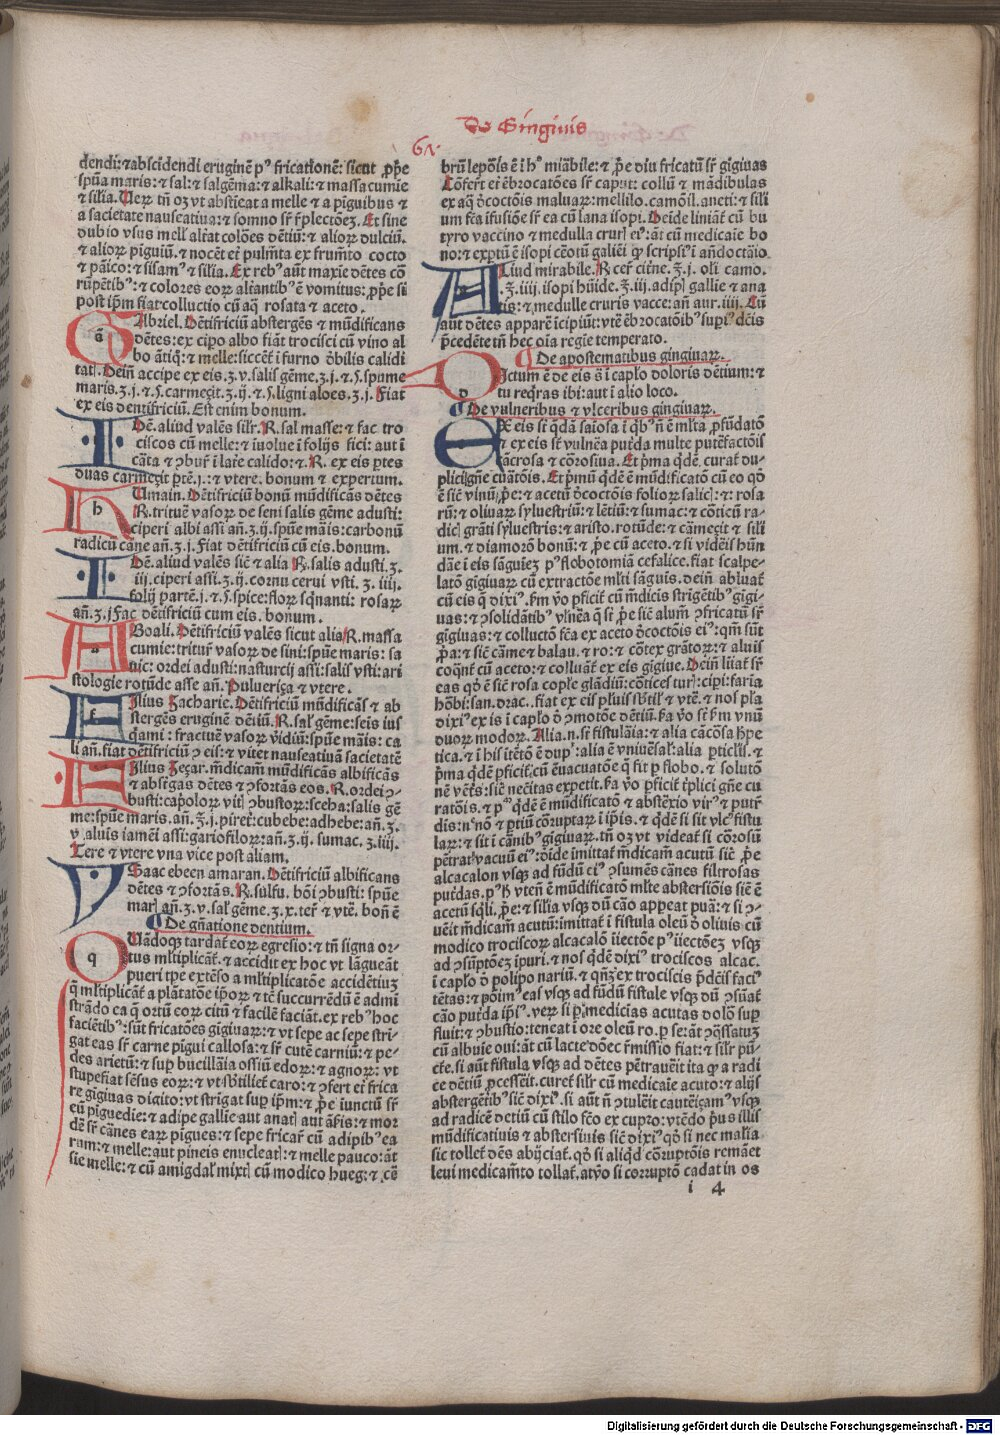 De Gingiuis
61.
dendi: ⁊ abscidendi eruginē pꝰ fricationē: sicut ꝓpe
spūa maris: ⁊ sal: ⁊ salgēma: ⁊ alkali: ⁊ massacumie
⁊ silia. Uerz tñ oz vt abstieat a melle ⁊ a pīguibus ⁊
a sacietate nauseatiua: ⁊ somno sr̄ p̄plectōez. Et sine
dubio vsus mell' altāt colōes dētiū: ⁊ alioꝝ dulciū.
⁊ alioꝝ pīguiū: ⁊ nocēt ei pulmēta ex frumēto cocto
⁊ pāico: ⁊ sisamꝰ ⁊ silia. Ex rebꝰ aūt maxie dētes cō
rūpētibꝰ: ⁊ colores eoꝝ altantibꝰ ē vomitus: ꝓpe si
post ip̄m fiat colluctio cū aq̄ rosata ⁊ aceto.
Abriel. Dētifriciū abstergēs ⁊ mūdificans
dētes: ex cipo albo fiāt trocisci cū vino al
bo ātiq̄: ⁊ melle: siccēt i furno ōbilis calidi
tatꝭ. Dein̄ accipe ex eis. ʒ. v. salis gēme. ʒ. j. ⁊ s. spume
maris. ʒ. j. ⁊ s. carmeꝫit. ʒ. ij. ⁊ s. ligni aloes. ʒ. j. Fiat
ex eis dentifriciū. Est enim bonum.
Dē. aliud valēs silr̄. ℞. sal masse: ⁊ fac tro
ciscos cū melle: ⁊ iuolue i folijs fici: aut i
cāta ⁊ ꝯbur̄ i late calido: ⁊. ℞. ex eis p̄tes
duas carmeꝫit p̄tē. j. ⁊ vtere. bonum ⁊ expertum.
Umain. Dētifriciū bonū mūdificās dētes
℞. trituē vasoꝝ de seni salis gēme adusti:
ciperi albi assi añ. ʒ. ij. spūe māis: carbonū
radicū cane añ. ʒ. j. fiat dētifriciū cū eis. bonum.
Dē. aliud valēs sic̄ ⁊ alia ℞. salis adusti. ʒ.
iij. ciperi assi. ʒ. ij. cornu cerui vsti. ʒ. iiij.
folij partē. j. ⁊ s. spice: floꝝ sq̄nanti: rosaꝝ
añ. ʒ. j Fac dētifriciū cum eis. bonum.
Boali. Dētifriciū valēs sicut alia ℞. massa
cumie: tritur̄ vasoꝝ de sini: spūe maris: sa
uic: ordei adusti: nasturcij assi: salis vsti: ari
stologie rotūde asse añ. Pulueriza ⁊ vtere.
Ilius Zacharie. Dētifriciū mūdificās ⁊ ab
stergēs eruginē dētiū. ℞. sal gēme: seis ius
q̄ami: fractuē vasoꝝ v̄idiū: spūe māis: ca
li añ. fiat dētifriciū ꝯ eis: ⁊ vitet nauseatiuā sacietatē
Ilius Zezar. m̄dicam̄ mūdificās albificās
⁊ abstr̄gās dētes ⁊ ꝯfortās eos. ℞. ordei ꝯ-
busti: cap̄oloꝝ vitꝭ ꝯbustoꝝ: sceba: salis gē
me: spūe maris. añ. ʒ. j. piret: cubebe: adhebe: añ. ʒ.
v. aluis iamēi assi: gariofiloꝝ: añ. ʒ. ij. sumac. ʒ. iiij.
Tere ⁊ vtere vna vice post aliam.
Saac ebeen amaran. Dētifriciū albificans
dētes ⁊ ꝯfortās. ℞. sulfu. bōi ꝯbusti: spūe
marꝭ añ. ʒ. v. sal' gēme. ʒ. x. ter̄ ⁊ vtē. boñ ē
De gñatione dentium.
Uādoqꝫ tardāt eoꝝ egresio: ⁊ tñ signa or-
tus mltiplicāt. ⁊ accidit ex hoc vt lāgueāt
pueri tpe extēso a mltiplicatōe accidētiuꝫ
q̄ mltiplicāt a plātatōe ip̄oꝝ ⁊ tē succurrēdū ē admi
strādo ea q̄ ortū eoꝝ citū ⁊ facilē faciāt. ex rebꝰ hoc
faciētibꝰ: sūt fricatōes gigiuaꝝ: ⁊ vt sepe ac sepe stri-
gat eas sr̄ carne pīgui callosa: ⁊ sr̄ cutē carniū: ⁊ pe-
des arietū: ⁊ sup bucillāia ossiū edoꝝ: ⁊ agnoꝝ: vt
stupefiat sēsus eoꝝ: ⁊ vt sb̄tiliet caro: ⁊ ꝯfert ei frica
re gigiuas digito: vt strigat sup ip̄m: ⁊ ꝓpe iunctū sr̄
cū piguedie: ⁊ adipe gallie aut anatꝭ aut āsris: ⁊ mor
dē sr̄ cānes eaꝝ pigues: ⁊ sepe fricar̄ cū adipibꝰ ea
rum: ⁊ melle: aut pineis enucleatꝭ: ⁊ melle pauco: āt
sie melle: ⁊ cū amigdal' mixtꝭ cū modico hueg: ⁊ ce
brū lepōis ē i hꝰ miābile: ⁊ p̄e diu fricatū sr̄ gigiuas
Cōfert ei ēbrocatōes sr̄ caput: collū ⁊ mādibulas
ex aq̄ ōcoctōis maluaꝝ: mellilo. camōil. aneti: ⁊ silī
um fēa ifusiōe sr̄ ea cū lana isopi. Deide liniāt cū bu
tyro vaccino ⁊ medulla crurꝭ eiꝰ: āt cū medicaīe bo
no: ⁊ exptū ē isopi cēotū galiēi qꝫ scripsiꝰ ī añdoctāio
Liud mirabile. ℞ cer̄ citrie. ʒ. j. olī camo.
ʒ. iiij. isopi hūide. ʒ. iij. adipꝭ gallie ⁊ ana
tis: ⁊ medulle cruris vacce: añ. aur. iiij. Cū
aut dētes apparē icipiūt: vtē ēbrocatōibꝰ supiꝰ dc̄is
p̄cedēte tñ hec oīa regie temperato.
De apostematibus gingiuaꝝ.
Ictum ē de eis s̄ i cap̄lo doloris dētium: ⁊
tu reqras ibi: aut i alio loco.
De vulneribus ⁊ vlceribus gingiuaꝝ.
Ex eis st̄ q̄dā saiosa i q̄bꝰ ñ ē mlta ꝓfūdatō
⁊ ex eis st̄ vulnēa put̄da multe putēfactōis
cācrosa ⁊ cōrosiua. Et p̄ma q̄dē. curāt du-
plici gñe cuātōis. Et p̄mū q̄dē ē mūdificatō cū eo qō
ē sic̄ vinū ꝓe: ⁊ acetū ōcoctōis folioꝝ salicꝭ: ⁊: rosa
rū: ⁊ oliuaꝝ syluestriū: ⁊ lētiū: ⁊ sumac: ⁊ cōticū ra-
dicꝭ grāti syluestris: ⁊ aristo. rotūde: ⁊ cāmeꝫit ⁊ silī
um. ⁊ diamorō bonū: ⁊ ꝓe cū aceto. ⁊ si vidēis hūn
dāe ī eis sāguiez pꝰ flobotomiā cefalice. fiat scalpe-
latō gigiuaꝝ cū extractōe mlti sāguis. dein̄ abluāt
cū eis q̄ dixiꝰ. km̄ vo ꝓficit cū m̄dicīs strigētibꝰ gigi-
uas: ⁊ ꝯsolidātibꝰ vlnēa q̄ st̄ p̄e sic̄ alum̄ ꝯfricatū sr̄
gigiuas: ⁊ colluctō fēa ex aceto ōcoctōis eiꝰ: qm̄ sūt
ꝓa: ⁊ sic̄ cāme ⁊ balau. ⁊ ro: ⁊ cōtex grātoꝝ: ⁊ aluīs
coqūt cū aceto: ⁊ colluāt ex eis gigiue. Dein̄ līiāt sr̄
eas qō ē sic̄ rosa cop̄le glādiū: cōticesꝭ turꝭ: cipi: faria
hōbi: san. drac.. fiat ex eis pluis sb̄til' ⁊ vtē. ⁊ nos p̄la
dixiꝰ ex is i cap̄lo ō ꝯmotōe dētiū. ka vo st̄ km̄ vnū
duoꝝ modoꝝ. Alia. n. st̄ fistulāia: ⁊ alia cācōsa h̄pe
tica. ⁊ i his itētō ē dupꝭ: alia ē vniuēsal': alia pticlīs. ⁊
p̄ma q̄dē ꝓficit cū ēuacuatōe q̄ fit p flobo. ⁊ solutō
nē vētꝭs: sic̄ neciꝰtas expetit. ka vo ꝓficit tplici gñe cu
ratōis. ⁊ pꝰ q̄dē ē mūdificatō ⁊ abstēxio virꝰ ⁊ putꝭ
dis: nꝰnō ⁊ ꝓtiū cōruptaꝝ ī ip̄is. ⁊ q̄dē si sit vlcꝰ fistu
laꝝ: ⁊ sit i cānibꝰ gigiuaꝝ. tñ oz vt videāt si cōrosū
pētrat vacuū eiꝰ: ōide imittāt m̄dicam̄ acutū sic̄ p̄e
alcacalon vsqꝫ ad fūdū ciꝰ ꝯsumēs cānes filtrosas
put̄das. pꝰ h vteñ ē mūdificatō mlte abstersiōis sic̄ ē
acetū sq̄li. p̄e: ⁊ silia vsqꝫ dū cāo appeat puā: ⁊ si ꝯ-
uēit m̄dicam̄ acutū: imittāt i fistula oleū ō oliuis cū
modico trociscoꝝ alcacalō iiectōe pꝰ iiectōez vsqꝫ
ad ꝯsūptōez ipuri. ⁊ nos q̄dē dixiꝰ trociscos alcac.
i cap̄lo ō polipo nariū. ⁊ qñz ex trociscis p̄dc̄is faciꝰ
tētas: ⁊ pōimꝰ eas vsqꝫ ad fūdū fistule vsqꝫ dū ꝯsūāt
cāo put̄da ip̄iꝰ. veꝝ si p̄ medicias acutas dolō sup
fluit: ⁊ ꝯbustio: teneat i ore oleū ro. p se: āt ꝯq̄ssatuꝫ
cū albuie oui: āt cū lacte dōec r̄missio fiat: ⁊ silr̄ pū-
cte. si aūt fistula vsqꝫ ad dētes pētrauēit ita q̄ a radi
ce dētiū ꝓcesseīt. curet̄ silr̄ cū medicaīe acuto: ⁊ alijs
abstergētibꝰ sic̄ dixiꝰ. si aūt ñ ꝯtulēit cautēiꝫam̄ vsqꝫ
ad radicē detiū cū stilo fēo ex cupro: vtēdo p̄us illis
mūdificatiuis ⁊ abstersiuis sic̄ dixiꝰ qō si nec malīa
sic tollet̄ dēs abijciat. qō si aliqd cōruptōis remāet
leui medicam̄to tollat. atvo si corruptō cadat in os
i 4
Digitalisierung gefördert durch die Deutsche Forschungsgemeinschaft - DFG